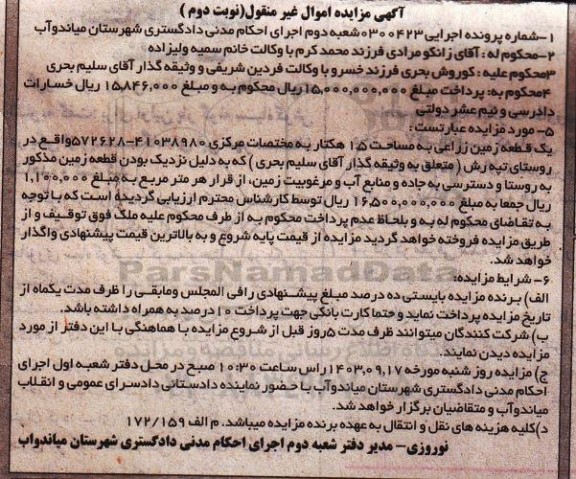 آگهی مزایده اموال غیر منقول(نوبت دوم )
۱-شماره پرونده اجرایی ۰۳۰۰۴۲۳شعبه دوم اجرای احکام مدنی دادگستری شهرستان میاندوآب
۲-محکوم له : آقای زانکو مرادی فرزند محمد کرم با وکالت خانم سمیه ولیزاده
۳محکوم علیه : کوروش بحری فرزند خسرو با وکالت فردین شریفی و وثیقه گذار آقای سلیم بحری
۴محکوم به: پرداخت مبلغ ۱۵,۰۰۰,۰۰۰,۰۰۰ریال محکوم به و مبلغ ۱۵,۸۴۶,۰۰۰ ریال خسارات
دادرسی و نیم عشر دولتی
۵- مورد مزایده عبارتست :
یک قطعه زمین زراعی به مساحت ۱.۵ هکتار به مختصات مرکزی ۴۱۰۳۸۹۸۰-۵۷۲۶۲۸واقع در
روستای تپه رش ( متعلق به وثیقه گذار آقای سلیم بحری ) که به دلیل نزدیک بودن قطعه زمین مذکور
به روستا و دسترسی به جاده و منابع آب و مرغوبیت زمین، از قرار هر متر مربع به مبلغ ۱,۱۰۰,۰۰۰
ریال جمعا به مبلغ ۱۶,۵۰۰,۰۰۰,۰۰۰ ریال توسط کارشناس محترم ارزیابی گردیده است که با توجه
به تقاضای محکوم له به و بلحاظ عدم پرداخت محکوم به از طرف محکوم علیه ملک فوق توقیف و از
طریق مزایده فروخته خواهد گردید مزایده از قیمت پایه شروع و به بالاترین قیمت پیشنهادی واگذار
خواهد شد.
ParsNamadData
۶- شرایط مزایده:
الف) برنده مزایده بایستی ده درصد مبلغ پیشنهادی را فی المجلس ومابقی را ظرف مدت یکماه از
تاریخ مزایده پرداخت نماید و حتما کارت بانکی جهت پرداخت ۱۰ درصد به همراه داشته باشد.
ب) شرکت کنندگان میتوانند ظرف مدت ۵روز قبل از شروع مزایده با هماهنگی با این دفتر از مورد
مزایده دیدن نمایند.
ج) مزایده روز شنبه مورخه ۱۴۰۳,۰۹,۱۷راس ساعت ۱۰:۳۰ صبح در محل دفتر شعبه اول اجرای
احکام مدنی دادگستری شهرستان میاندوآب با حضور نماینده دادستانی دادسرای عمومی و انقلاب
میاندوآب و متقاضیان برگزار خواهد شد.
د)کلیه هزینه های نقل و انتقال به عهده برنده مزایده میباشد. م الف ۱۷۲/۱۵۹
نوروزی- مدیر دفتر شعبه دوم اجرای احکام مدنی دادگستری شهرستان میاندواب